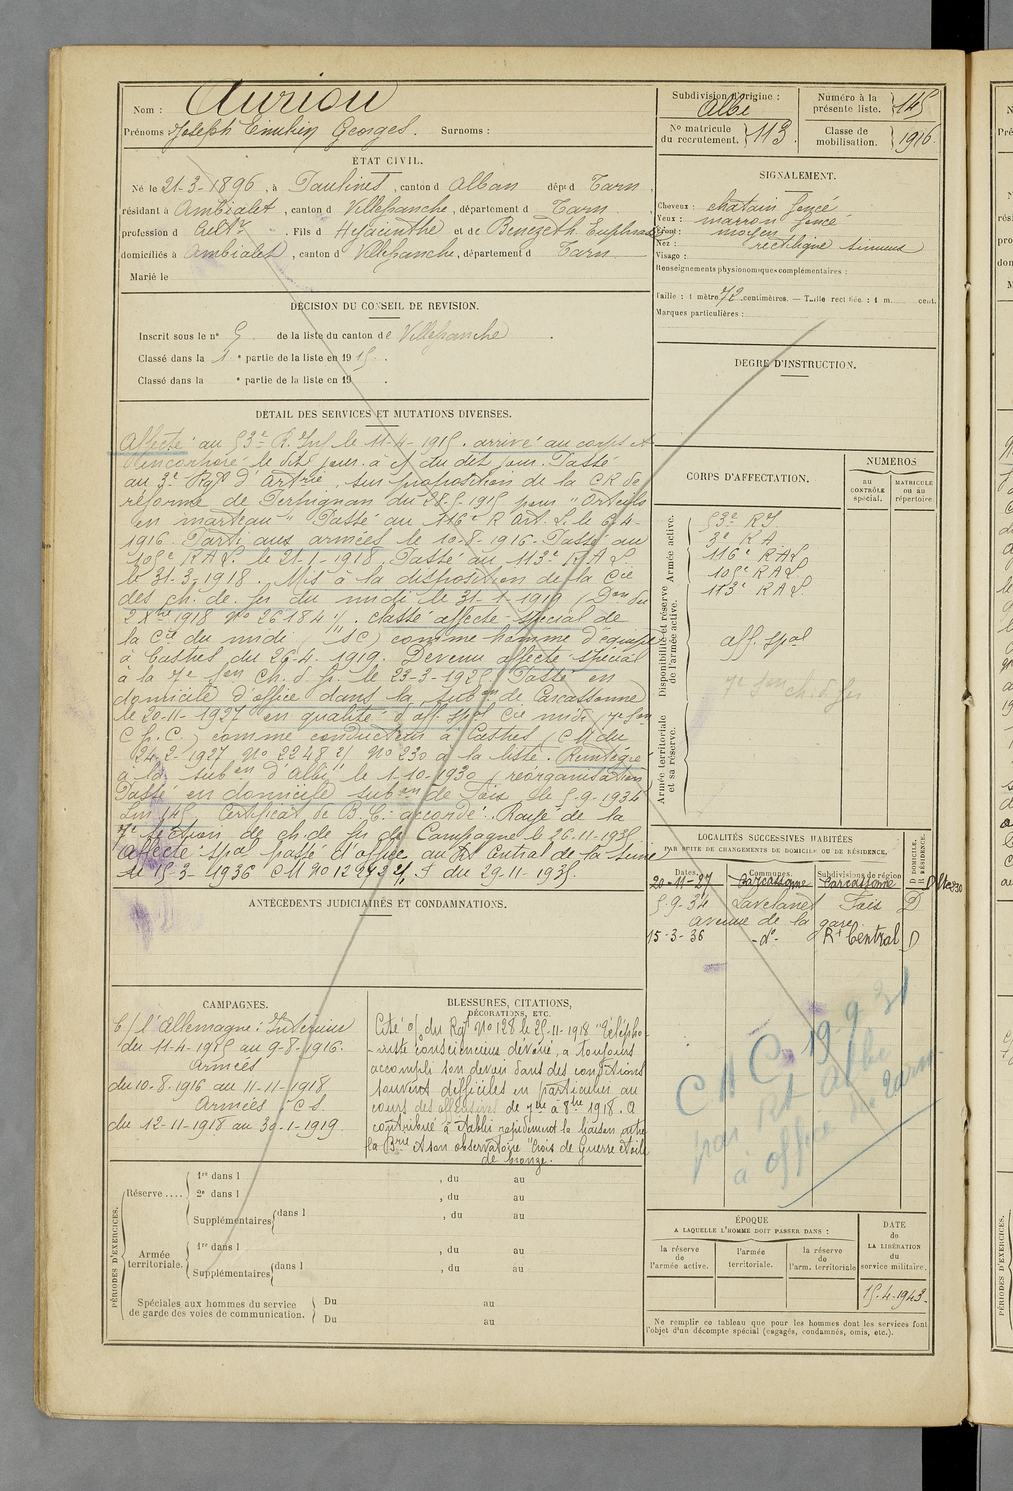 Nom : Auriou
Prénoms Joseph Emilien Georges. Surnoms :
ÉTAT CIVIL.
Né le 21-3-1896, à Paulinet, canton d Alban dépt d Tarn.
résidant à Ambialet, canton d Villefranche, département d Tarn
profession d Cultr. Fils d Hyacinthe et de Benezeth Euphrasie
domiciliés à Ambialet, canton d Villefranche, département d Tarn
Marié le
DÉCISION DU CONSEIL DE REVISION.
Inscrit sous le n° 5 de la liste du canton de Villefranche.
Classé dans la 1e partie de la liste en 1915.
Classé dans la e partie de la liste en 19 .
DÉTAIL DES SERVICES ET MUTATIONS DIVERSES.
Affecté au 53e R. d'Inf le 11-4-1915. arrivé au corps et
incorporé le dit jour. à c/ du dit jour. Passé
au 3e Rgt d'Artrie, sur proposition de la C R de
réforme de Perpignan du 28-5-1915 pour "orteils
en marteau" Passé au 116e R Art. L. le 6-4-
1916. Parti aux armées le 10-8-1916. Passé au
105e R A L. le 21-1-1918. Passé au 113e R A L
le 31-3-1918. Mis à la disposition de la Cie
des ch. de fer du midi le 31-1-1919 (Don du
2 Xbre 1918 No 26184 1/11). classé affecté spécial de
la Cie du midi (S C) comme homme d'équipe
à Castres du 26-4-1919. Devenu affecté spécial
à la 7e Son ch. d. f. le 23-3-1925 Passé en
domicile d'office dans la subon de Carcassonne
le 20-11-1927 en qualité d'aff. spal Cie midi 7e Son
C. f. C.) comme conducteur à Castres (C M du
24-2-1927 No 2248 2/ No 230 à la liste. Réintégré
à la subon d'Albi le 1-10-1930 (réorganisation
Passé en domicile subon de Foix le 5-9-1934
Certificat de B. C. accordé. Rayé de la
7e Section de ch. de fer de Campagne le 26-11-1935
Affecté spal passé d'office au Rt Central de la Seine
le 15-3-1936 C M No 12972 S du 29-11-1935.
ANTÉCÉDENTS JUDICIAIRES ET CONDAMNATIONS.
CAMPAGNES.
C/ l'Allemagne : Intérieur
du 11-4-1915 au 9-8-1916.
Armées
du 10-8-1916 au 11-11-1918
Armées C S.
du 12-11-1918 au 30-1-1919.
BLESSURES, CITATIONS,
DÉCORATIONS, ETC.
Cité o/ du Rgt No 128 le 25-11-1918 "Télépho-
-niste consciencieux dévoué, a toujours
accompli son devoir dans des conditions
souvent difficiles en particulier au
cours des offensives de 7bre à 8bre 1918. A
contribué à établir rapidement la liaison entre
la Brie et son observatoire" Croix de Guerre étoile
de bronze.
PÉRIODES D'EXERCICES.
Réserve....
1re dans l , du au
2e dans l , du au
Supplémentaires dans l , du au
Armée territoriale.
1re dans l , du au
Supplémentaires dans l , du au
Spéciales aux hommes du service
de garde des voies de communication.
Du au
Du au
Subdivision d'origine :
Albi
Numéro à la
présente liste. 145
N° matricule
du recrutement. 113.
Classe de
mobilisation. 1916
SIGNALEMENT.
Cheveux : chatain foncé
Yeux : marron foncé
Front : moyen
Nez : rectiligne sinueux
Visage :
Renseignements physionomiques complémentaires :
Taille : 1 mètre 72 centimètres. — Taille rectifiée : 1 m. cent.
Marques particulières :
DEGRÉ D'INSTRUCTION.
CORPS D'AFFECTATION.
NUMÉROS
AU
CONTRÔLE
spécial.
MATRICULE
ou au
répertoire.
Armée active.
53e R I.
3e R A
116e R A L
105e R A L
113e R A L
Disponibilité et réserve
de l'armée active.
aff. spal
7e Son ch. d. fer
Armée territoriale
et sa réserve.
LOCALITÉS SUCCESSIVES HABITÉES
PAR SUITE DE CHANGEMENTS DE DOMICILE OU DE RÉSIDENCE.
Dates. Communes. Subdivisions de région D DOMICILE. R RÉSIDENCE.
20-11-27 Carcassonne Carcassonne D
5-9-34 Lavelanet Foix D
avenue de la gare
15-3-36 -do- Rt Central D
C A C. 19-9-31
par Rt Albi
à office du Tarn
ÉPOQUE
A LAQUELLE L'HOMME DOIT PASSER DANS :
la réserve
de
l'armée active.
l'armée
territoriale.
la réserve
de
l'arm. territoriale
DATE
de
LA LIBÉRATION
du
service militaire.
15-4-1943.
Ne remplir ce tableau que pour les hommes dont les services font
l'objet d'un décompte spécial (engagés, condamnés, omis, etc.).